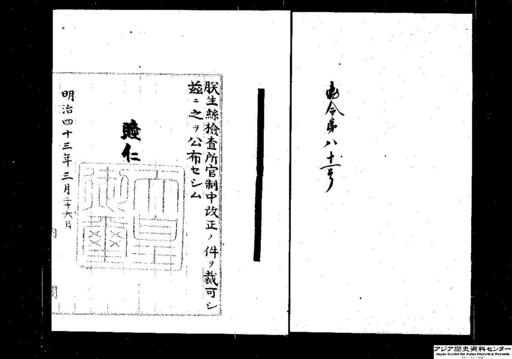 勅令第八十一号
朕生絲檢査所官制中改正ノ件ヲ裁可シ
茲ニ之ヲ公布セシム
睦仁
天皇
御璽
明治四十三年三月二十六日
アジア歴史資料センター
Japan Center for Asian Historical Records